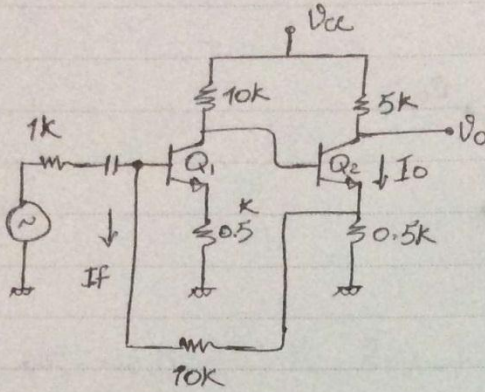 Vcc
10K
5K
1K
Vo
Q1
Q2
Io
K
0.5
0.5K
If
10K